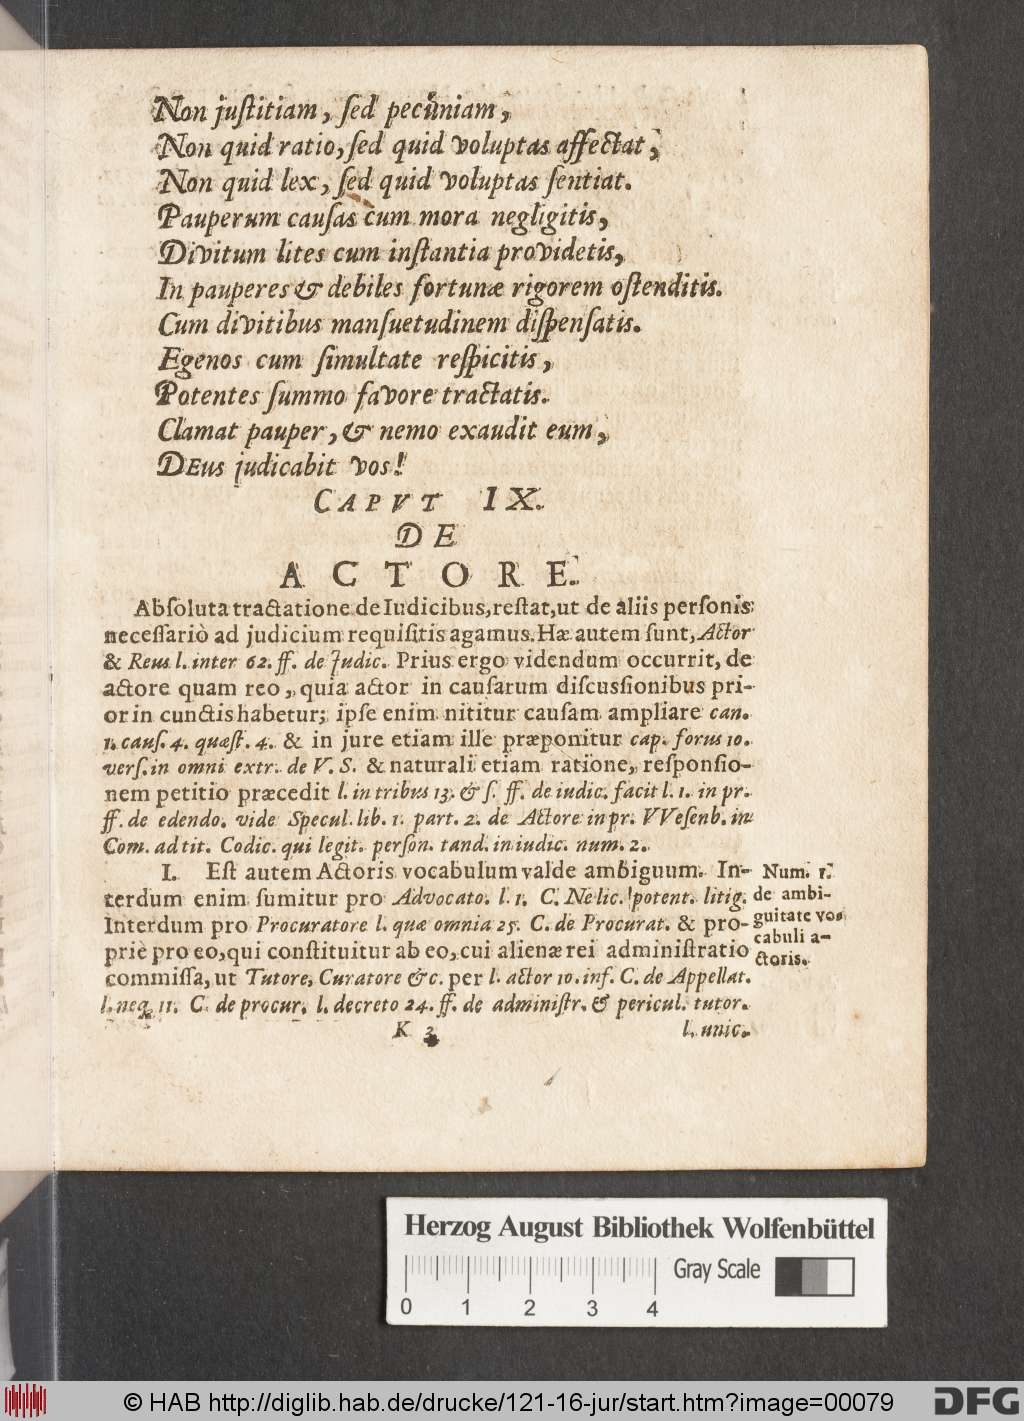 Non juſtitiam, ſed pecuniam,
Non quid ratio, ſed quid voluptas affectat,
Non quid lex, ſed quid voluptas ſentiat.
Pauperum cauſas cum mora negligitis,
Divitum lites cum inſtantia providetis,
In pauperes & debiles fortunæ rigorem oſtenditis.
Cum divitibus manſuetudinem diſpenſatis.
Egenos cum ſimultate reſpicitis,
Potentes ſummo favore tractatis.
Clamat pauper, & nemo exaudit eum,
DEus judicabit vos!
CAPVT IX.
DE
ACTORE.
Abſoluta tractatione de Iudicibus, reſtat, ut de aliis perſonis
neceſſariò ad judicium requiſitis agamus. Hæ autem ſunt, Actor
& Reus l. inter 62. ff. de Judic. Prius ergo videndum occurrit, de
actore quam reo, quia actor in cauſarum diſcuſſionibus pri-
or in cunctis habetur; ipſe enim nititur cauſam ampliare can.
1. cauſ. 4. quæſt. 4. & in jure etiam ille præponitur cap. forus 10.
verſ. in omni extr. de V. S. & naturali etiam ratione, reſponſio-
nem petitio præcedit l. in tribus 13. & ſ. ff. de iudic. facit l. 1. in pr.
ff. de edendo. vide Specul. lib. 1. part. 2. de Actore in pr. VVeſenb. in
Com. ad tit. Codic. qui legit. perſon. tand. in iudic. num. 2.
I. Eſt autem Actoris vocabulum valde ambiguum. In-
terdum enim ſumitur pro Advocato. l. 1. C. Ne lic. potent. litig.
Interdum pro Procuratore l. quæ omnia 25. C. de Procurat. & pro-
priè pro eo, qui conſtituitur ab eo, cui alienæ rei adminiſtratio
commiſſa, ut Tutore, Curatore &c. per l. actor 10. inf. C. de Appellat.
l. neq. 11. C. de procur. l. decreto 24. ff. de adminiſtr. & pericul. tutor.
Num. 1.
de ambi-
guitate vo-
cabuli a-
ctoris.
K 3
l. unic.
Herzog August Bibliothek Wolfenbüttel
Gray Scale
0 1 2 3 4
© HAB http://diglib.hab.de/drucke/121-16-jur/start.htm?image=00079
DFG